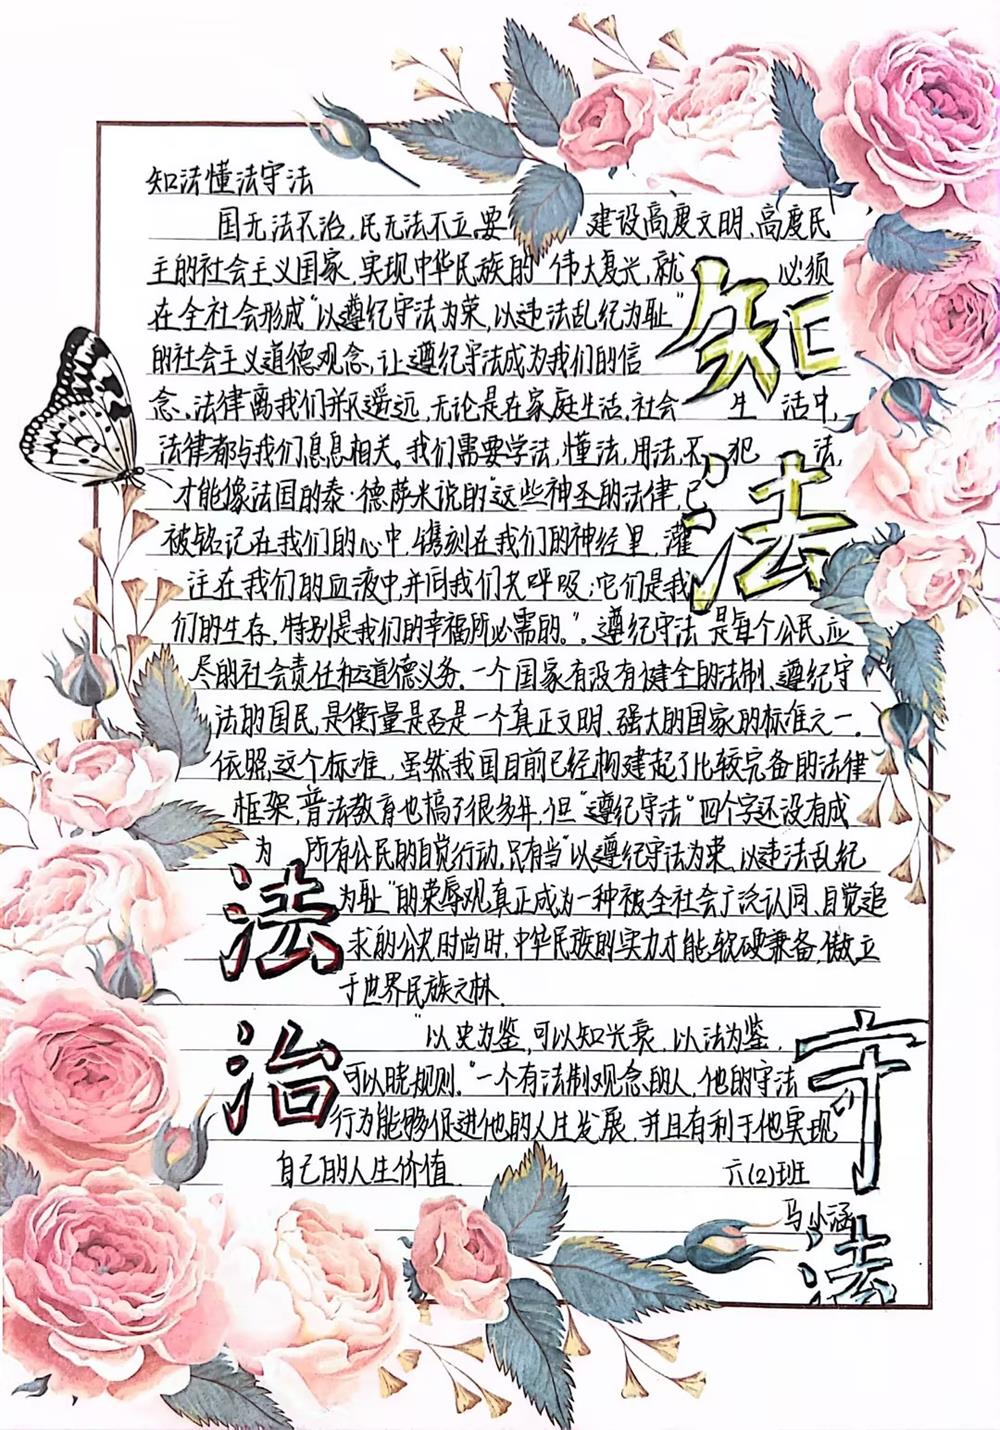 知法懂法守法
国无法不治，民无法不立，要建设高度文明、高度民
主的社会主义国家，实现中华民族的伟大复兴，就必须
在全社会形成“以遵纪守法为荣，以违法乱纪为耻”
的社会主义道德观念，让遵纪守法成为我们的信
念。法律离我们并不遥远，无论是在家庭生活，社会生活中，
法律都与我们息息相关。我们需要学法，懂法，用法，不犯法，
才能像法国的泰·德萨米说的“这些神圣的法律，已
被铭记在我们的心中，镌刻在我们的神经里，灌
注在我们的血液中，并同我们共呼吸；它们是我
们的生存，特别是我们的幸福所必需的。”。遵纪守法是每个公民应
尽的社会责任和道德义务。一个国家有没有健全的法制、遵纪守
法的国民，是衡量是否是一个真正文明、强大的国家的标准之一。
依照这个标准，虽然我国目前已经构建起了比较完备的法律
框架，普法教育也搞了很多年，但“遵纪守法”四个字还没有成
为所有公民的自觉行动，只有当“以遵纪守法为荣，以违法乱纪
为耻”的荣辱观真正成为一种被全社会广泛认同、自觉追
求的公共时尚时，中华民族的实力才能软硬兼备，傲立
于世界民族之林。
“以史为鉴，可以知兴衰，以法为鉴，
可以晓规则。”一个有法制观念的人，他的守法
行为能够促进他的人生发展，并且有利于他实现
自己的人生价值。
六(2)班
马小涵
知
法
守
法
法
治